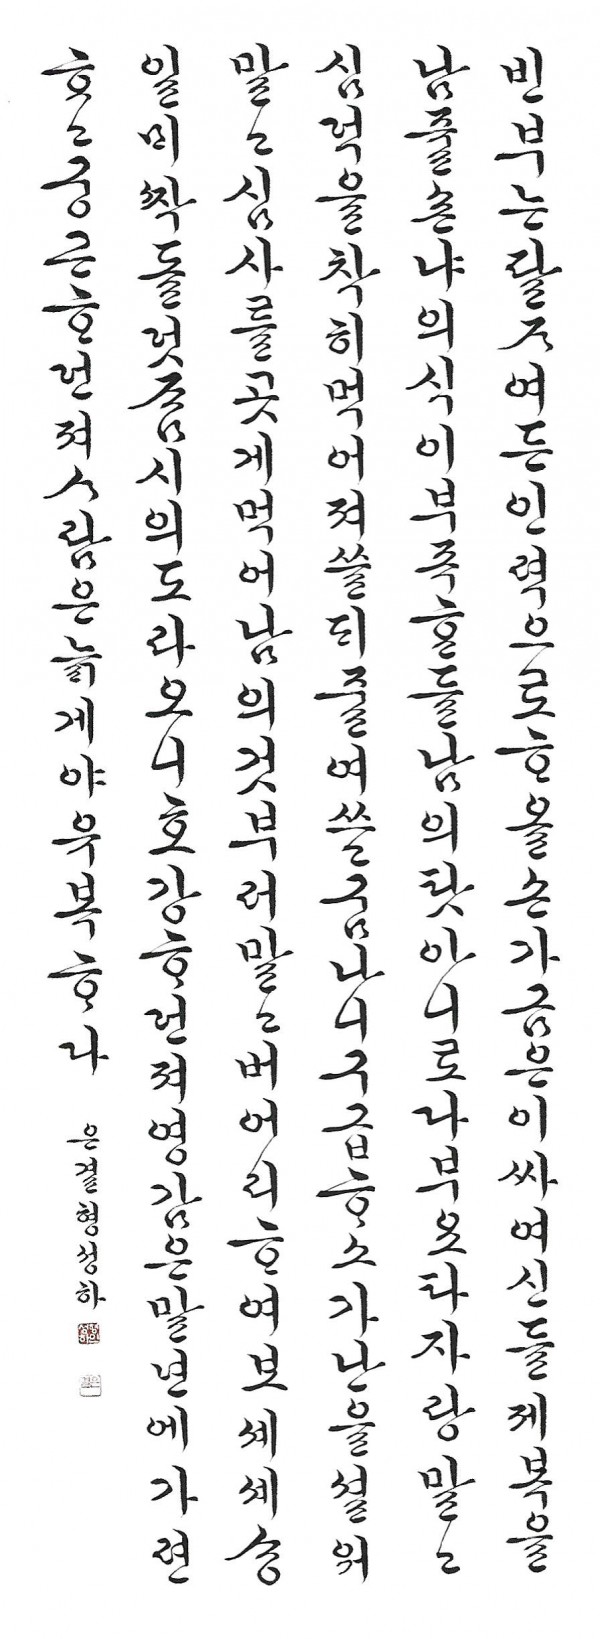 빈부는팔ᄌᆞ여든인력으로ᄒᆞ올손가금은이싸여신들제복을
남줄손냐의식이부족ᄒᆞᆫ들남의탓아니로다부요타자랑말고
심덕을착히먹어져쓸듸줄여쓸굼나니구급ᄒᆞ소가난을셜워
말고심사를곳게먹어남의것부러말고버어리ᄒᆞ여보세세송
일ᄯᅵ짝들럿줌시의도라오니호강ᄒᆞ던져영감은말년에가련
ᄒᆞ고궁곤ᄒᆞ던져ᄉᆞ람은늙게야유복ᄒᆞ다
은결형성하